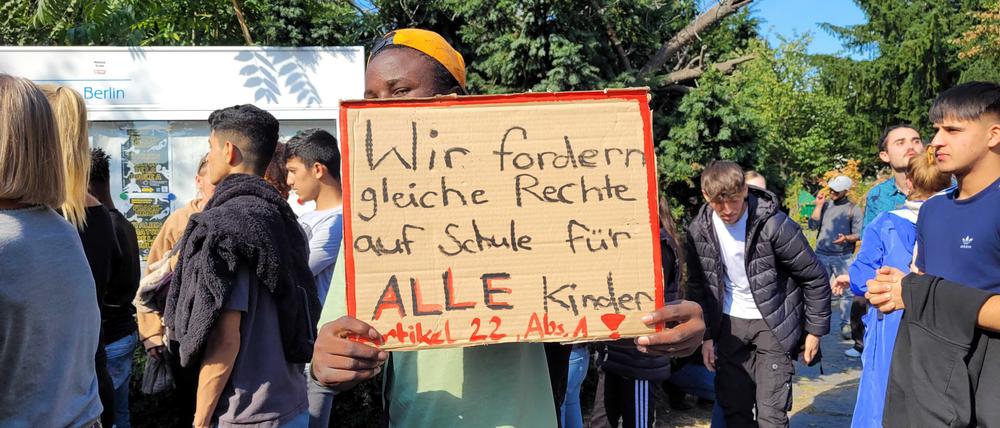 Berlin
Wir fordern
gleiche Rechte
auf Schule für
ALLE Kinder
Artikel 22 Abs.1!
adidas